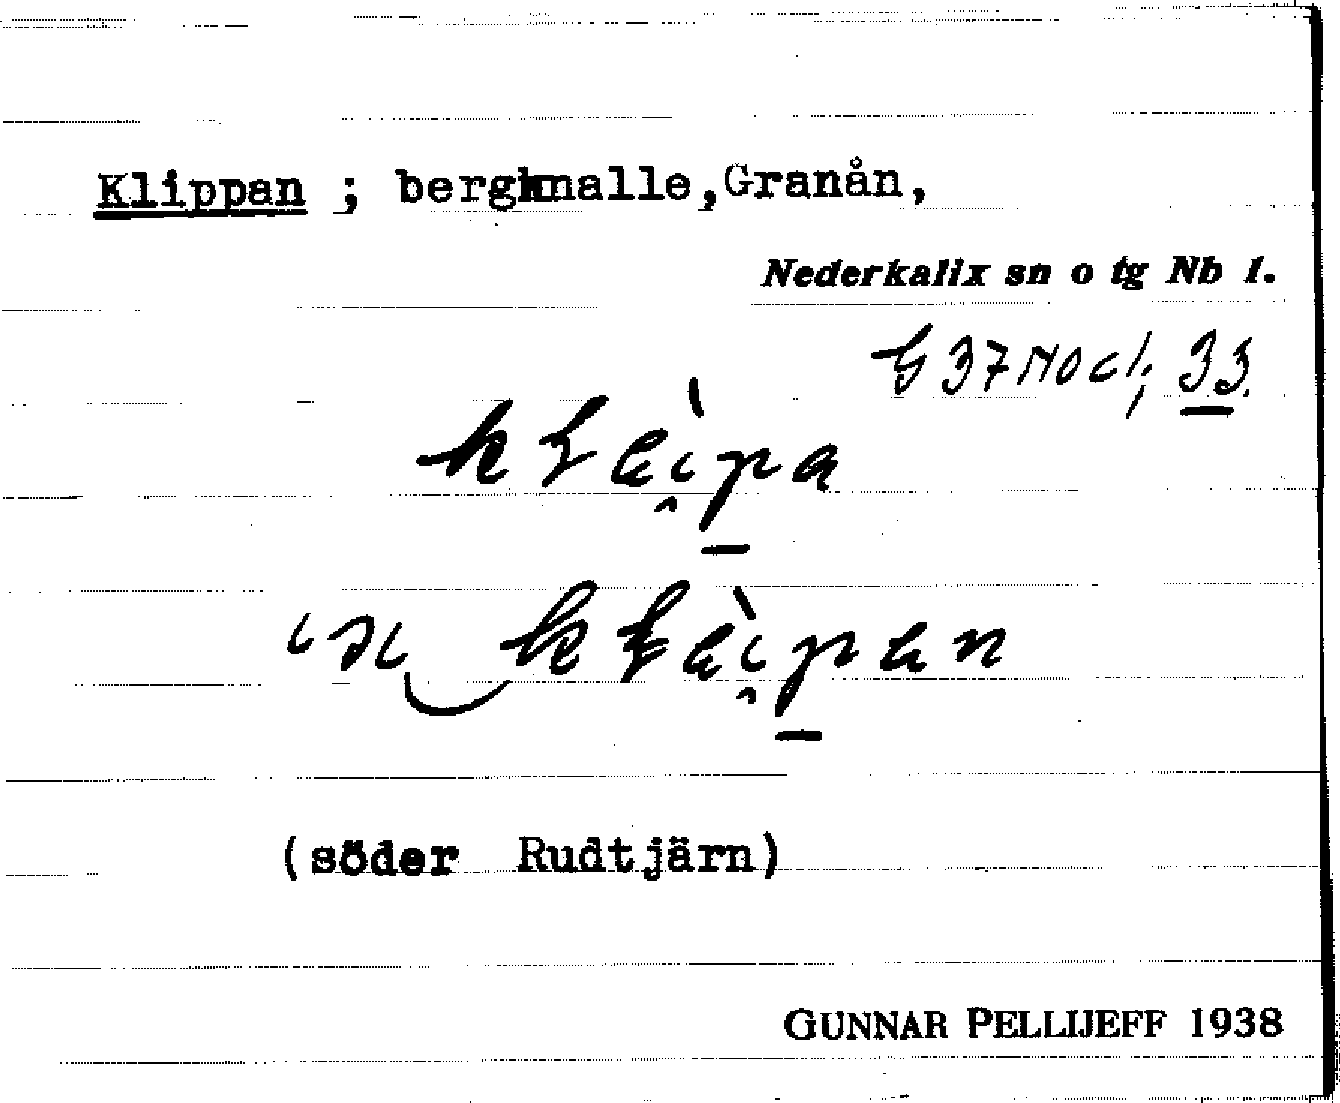 Klippan ; bergknalle,Granån,
Nederkalix sn o tg Nb 1.
G 37 NO cl; 33.
(söder Rudtjärn)
GUNNAR PELLIJEFF 1938